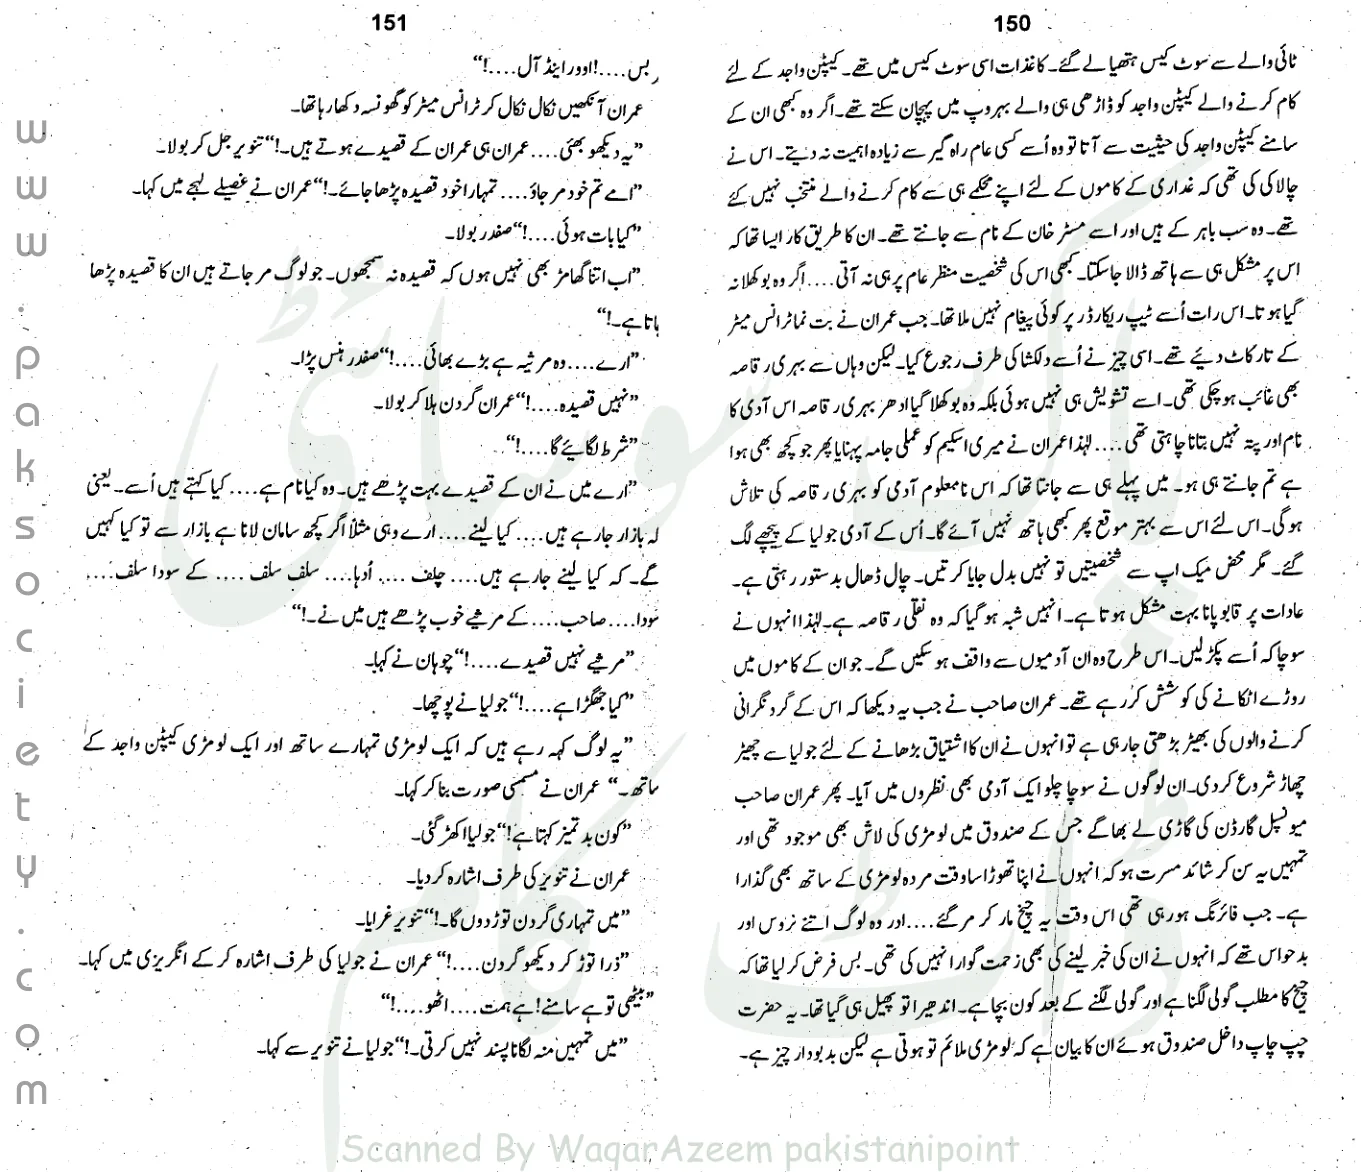 150
ٹائی والے سے سوٹ کیس ہتھیا لے گئے۔ کاغذات اسی سوٹ کیس میں تھے۔ کیپٹن واجد کے لئے
کام کرنے والے کیپٹن واجد کو ڈاڑھی ہی والے بہروپ میں پہچان سکتے تھے۔ اگر وہ کبھی ان کے
سامنے کیپٹن واجد کی حیثیت سے آتا تو وہ اُسے کسی عام راہ گیر سے زیادہ اہمیت نہ دیتے۔ اس نے
چالاکی کی تھی کہ غداری کے کاموں کے لئے اپنے محکمے ہی سے کام کرنے والے منتخب نہیں کئے
تھے۔ وہ سب باہر کے ہیں اور اسے مسٹر خان کے نام سے جانتے تھے۔ ان کا طریق کار ایسا تھا کہ
اس پر مشکل ہی سے ہاتھ ڈالا جاسکتا۔ کبھی اس کی شخصیت منظر عام پر ہی نہ آتی.... اگر وہ بوکھلا نہ
گیا ہوتا۔ اس رات اُسے ٹیپ ریکارڈر پر کوئی پیغام نہیں ملا تھا۔ جب عمران نے بت نما ٹرانس میٹر
کے تار کاٹ دیئے تھے۔ اسی چیز نے اُسے دلکشا کی طرف رجوع کیا۔ لیکن وہاں سے بہری رقاصہ
بھی غائب ہوچکی تھی۔ اسے تشویش ہی نہیں ہوئی بلکہ وہ بوکھلا گیا ادھر بہری رقاصہ اس آدی کا
نام اور پتہ نہیں بتانا چاہتی تھی.... لہٰذا عمران نے میری اسکیم کو عملی جامہ پہنایا پھر جو کچھ بھی ہوا
ہے تم جانتے ہی ہو۔ میں پہلے ہی سے جانتا تھا کہ اس نامعلوم آدمی کو بہری رقاصہ کی تلاش
ہوگی۔ اس لئے اس سے بہتر موقع پھر کبھی ہاتھ نہیں آئے گا۔ اُس کے آدی جولیا کے پیچھے لگ
گئے۔ مگر محض میک اپ سے شخصیتیں تو نہیں بدل جایا کرتیں۔ چال ڈھال بدستور رہتی ہے۔
عادات پر قابو پانا بہت مشکل ہوتا ہے۔ انہیں شبہ ہوگیا کہ وہ نقلی رقاصہ ہے۔ لہٰذا انہوں نے
سوچا کہ اُسے پکڑ لیں۔ اس طرح وہ ان آدمیوں سے واقف ہوسکیں گے۔ جو ان کے کاموں میں
روڑے اٹکانے کی کوشش کررہے تھے۔ عمران صاحب نے جب یہ دیکھا کہ اس کے گرد نگرانی
کرنے والوں کی بھیڑ بڑھتی جارہی ہے تو انہوں نے ان کا اشتیاق بڑھانے کے لئے جولیا سے چھیڑ
چھاڑ شروع کردی۔ ان لوگوں نے سوچا چلو ایک آدمی بھی نظروں میں آیا۔ پھر عمران صاحب
میونسپل گارڈن کی گاڑی لے بھاگے جس کے صندوق میں لومڑی کی لاش بھی موجود تھی اور
تمہیں یہ سن کر شائد مسرت ہو کہ انہوں نے اپنا تھوڑا سا وقت مردہ لومڑی کے ساتھ بھی گذارا
ہے۔ جب فائرنگ ہورہی تھی اس وقت یہ چیخ مار کر مرگئے.... اور وہ لوگ اتنے نروس اور
بدحواس تھے کہ انہوں نے ان کی خبر لینے کی بھی زحمت گوارا نہیں کی تھی۔ بس فرض کرلیا تھا کہ
چیخ کا مطلب گولی لگنا ہے اور گولی لگنے کے بعد کون بچا ہے۔ اندھیرا تو پھیل ہی گیا تھا۔ یہ حضرت
چپ چاپ داخل صندوق ہوئے ان کا بیان ہے کہ لومڑی ملائم تو ہوتی ہے لیکن بدبودار چیز ہے۔
151
بس....! اوور اینڈ آل....!“
عمران آنکھیں نکال نکال کر ٹرانس میٹر کو گھونسہ دکھا رہا تھا۔
”یہ دیکھو بھئی.... عمران ہی عمران کے قصیدے ہوتے ہیں۔!“ تنویر جل کر بولا۔
”اے تم خود مرجاؤ.... تمہارا خود قصیدہ پڑھا جائے۔!“ عمران نے غصیلے لہجے میں کہا۔
”کیا بات ہوئی....!“ صفدر بولا۔
”اب اتنا گھامڑ بھی نہیں ہوں کہ قصیدہ نہ سمجھوں۔ جو لوگ مرجاتے ہیں ان کا قصیدہ پڑھا
جاتا ہے۔!“
”ارے.... وہ مرثیہ ہے بڑے بھائی....!“ صفدر ہنس پڑا۔
”نہیں قصیدہ....!“ عمران گردن ہلا کر بولا۔
”شرط لگائیے گا....!“
”ارے میں نے ان کے قصیدے بہت پڑھے ہیں۔ وہ کیا نام ہے.... کیا کہتے ہیں اُسے۔ یعنی
کہ بازار جارہے ہیں.... کیا لینے.... ارے وہی مثلاً اگر کچھ سامان لانا ہے بازار سے تو کیا کہیں
گے۔ کہ کیا لینے جارہے ہیں.... چلف .... اُدہا.... سلف سلف .... کے سودا سلف....
سودا.... صاحب.... کے مرثیے خوب پڑھے ہیں میں نے۔!“
”مرثیے نہیں قصیدے....!“ چوہان نے کہا۔
”کیا جھگڑا ہے....!“ جولیا نے پوچھا۔
”یہ لوگ کہہ رہے ہیں کہ ایک لومڑی تمہارے ساتھ اور ایک لومڑی کیپٹن واجد کے
ساتھ۔“ عمران نے مسمسی صورت بنا کر کہا۔
”کون بدتمیز کہتا ہے!“ جولیا اکھڑ گئی۔
عمران نے تنویر کی طرف اشارہ کردیا۔
”میں تمہاری گردن توڑ دوں گا۔!“ تنویر غرایا۔
”ذرا توڑ کر دیکھو گردن....!“ عمران نے جولیا کی طرف اشارہ کرکے انگریزی میں کہا۔
”بیٹھی تو ہے سامنے! ہے ہمت.... اٹھو....!“
”میں تمہیں منہ لگانا پسند نہیں کرتی۔!“ جولیا نے تنویر سے کہا۔
www.paksociety.com
پاک سوسائٹی
ڈاٹ کام
Scanned By WaqarAzeem pakistanipoint